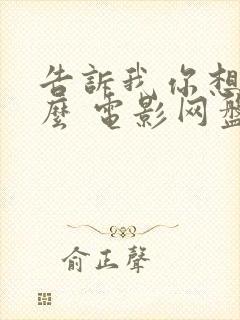 告訴我 你想
麼 電影网盤
俞正聲